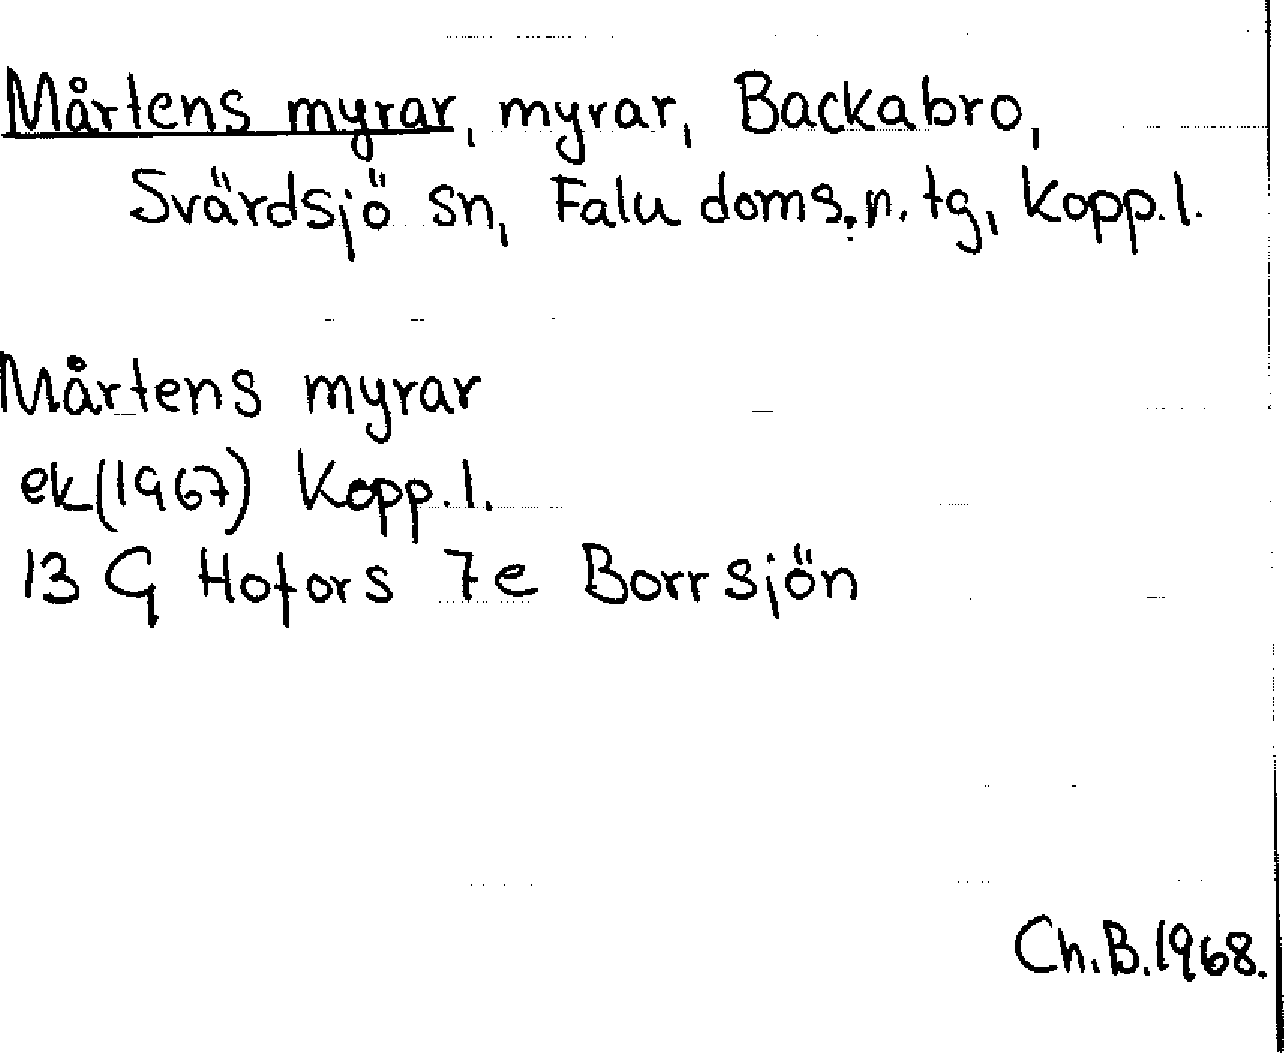 Mårtens myrar, myrar, Backabro,
Svärdsjö sn, Falu doms.n.tg, Kopp.l.
Mårtens myrar
ek(1967) Kopp.l.
13 G Hofors 7e Borrsjön
Ch.B.1968.